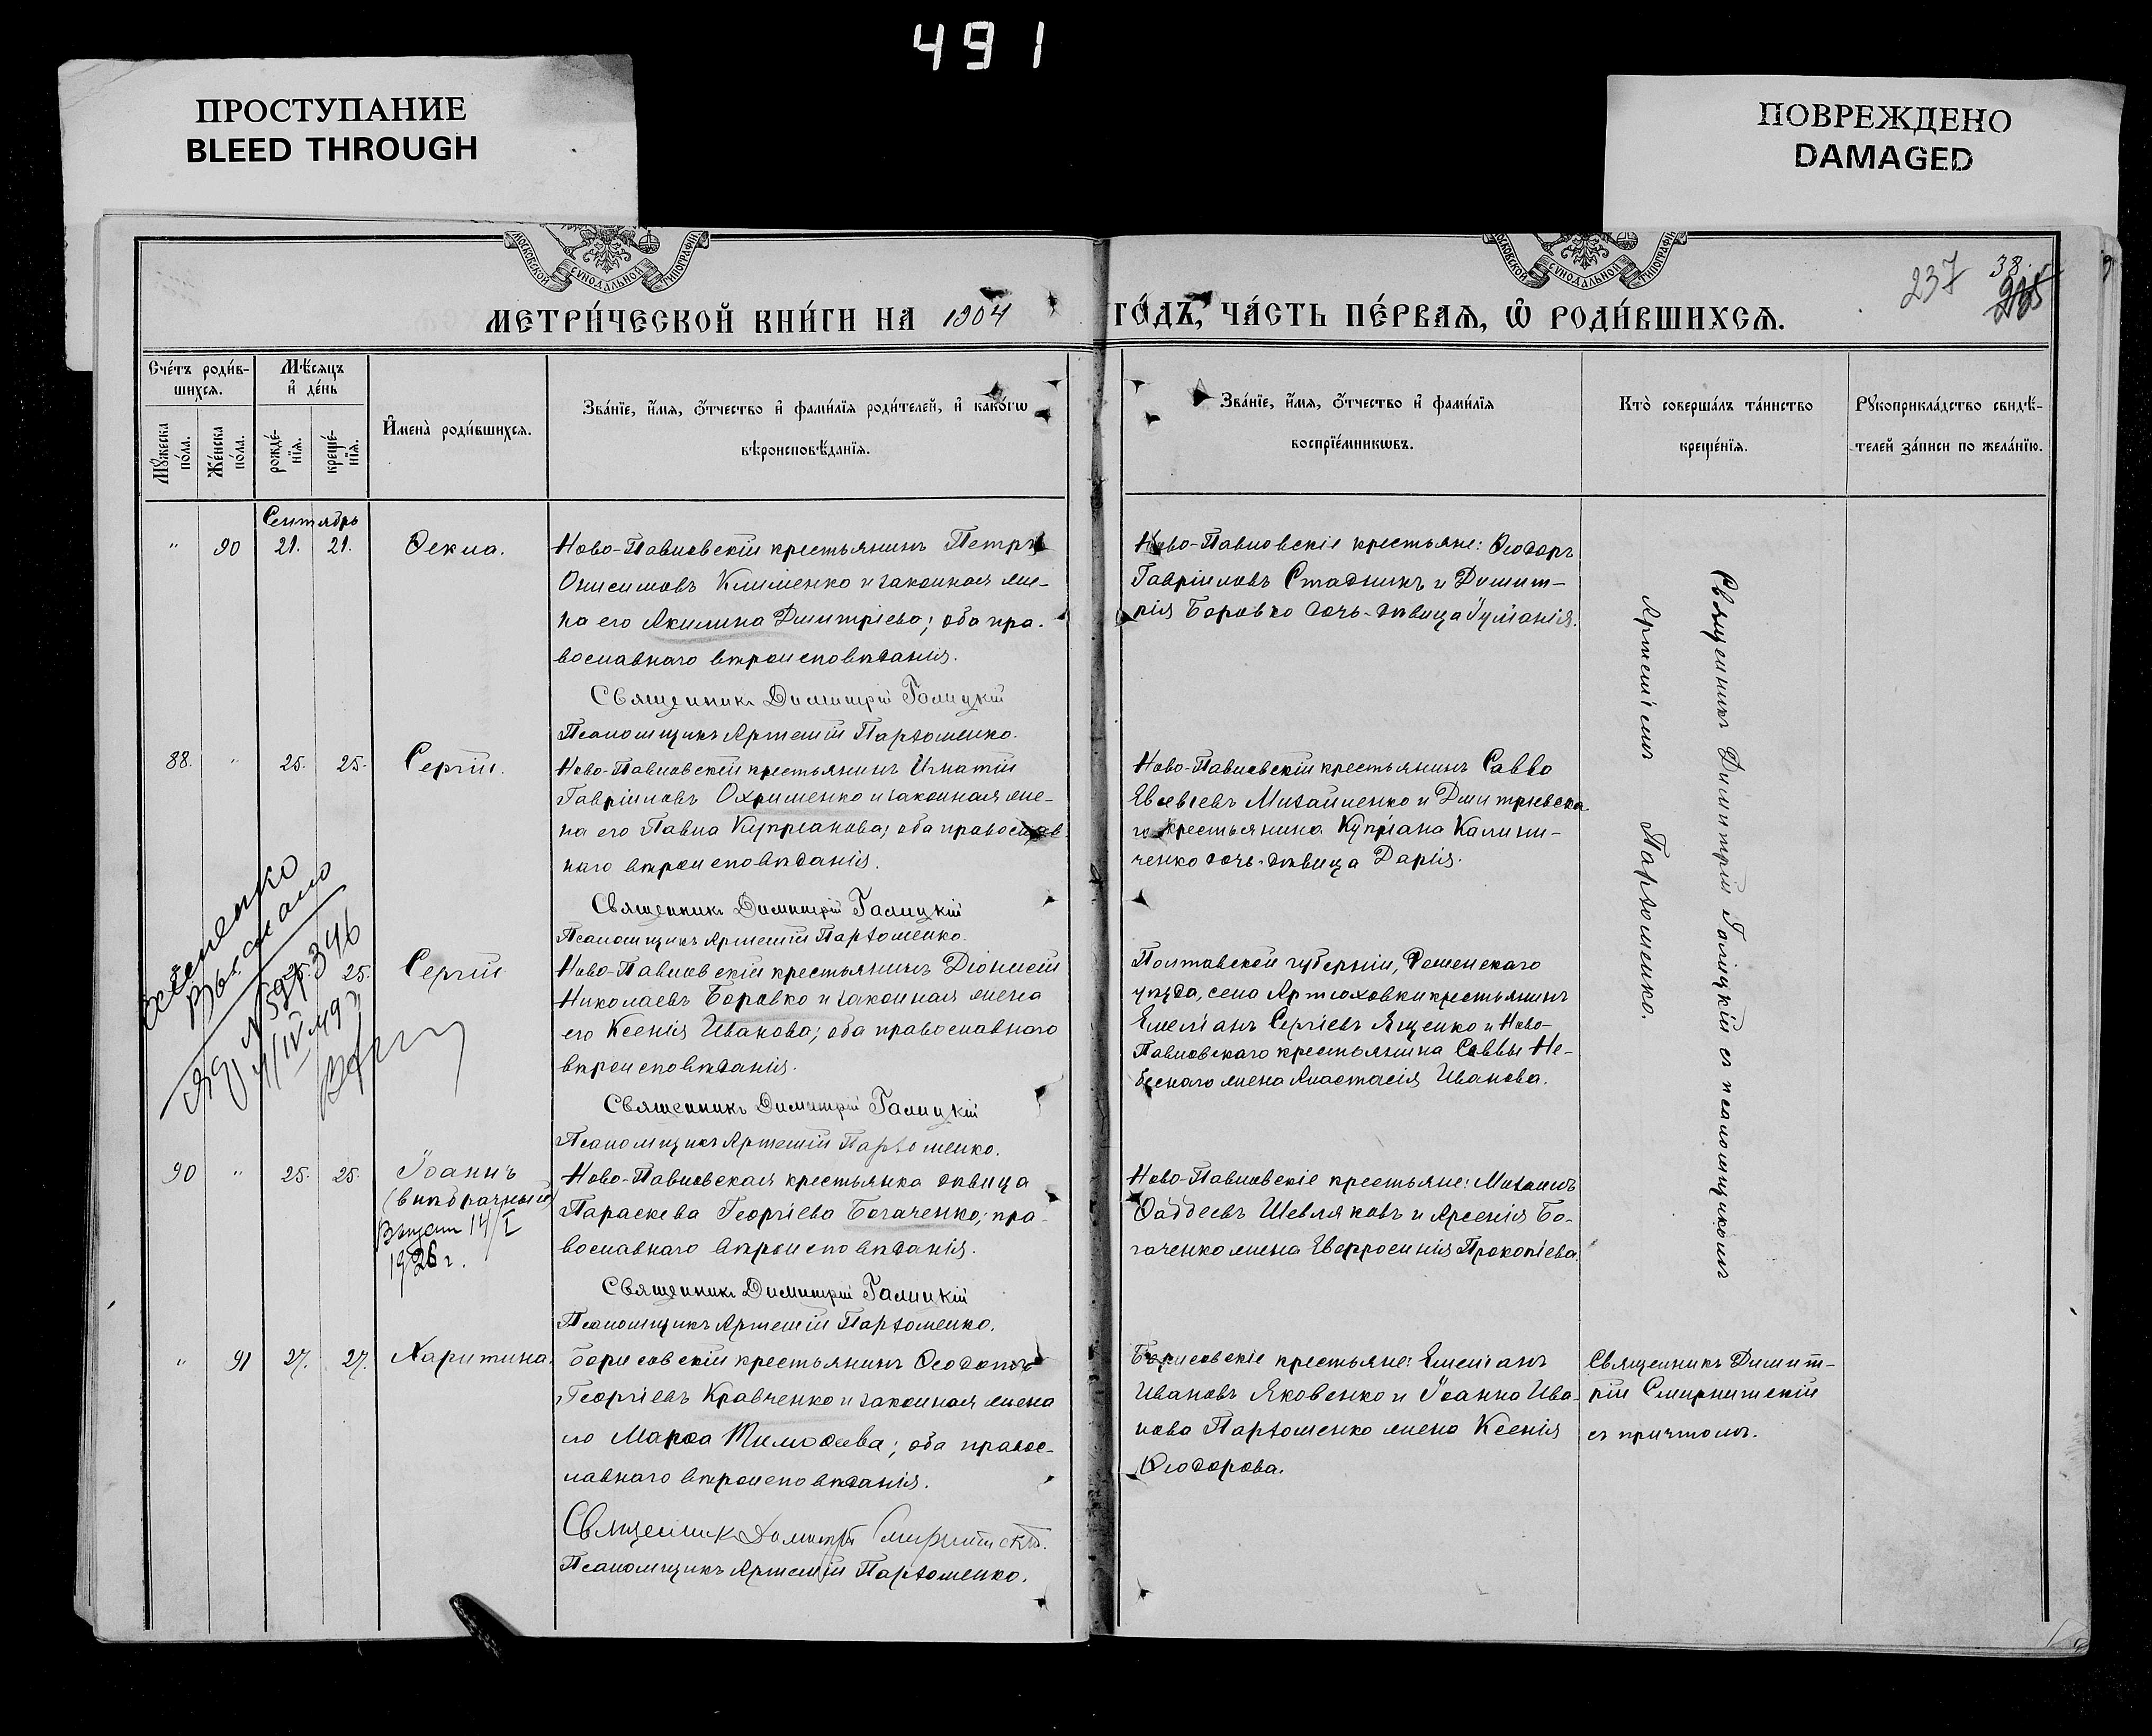 491
ПРОСТУПАНИЕ
BLEED THROUGH
ПОВРЕЖДЕНО
DAMAGED
МОСКОВСКОЙ СѴНОДАЛЬНОЙ ТИПОГРАФІИ
МОСКОВСКОЙ СѴНОДАЛЬНОЙ ТИПОГРАФІИ
237 38.
МЕТРИ́ЧЕСКОЙ КНИ́ГИ НА 1904 ГО́ДЪ, ЧА́СТЬ ПЕ́РВАѦ, Ѡ҆ РОДИ́ВШИХСѦ.
Сче́тъ роди́в-
шихсѧ.
Мꙋ́жеска по́ла.
Же́нска по́ла.
Мѣ́сѧцъ
и҆ де́нь
рожде́-
нїѧ.
креще́-
нїѧ.
И҆мена̀ роди́вшихсѧ.
Зва́нїе, и҆́мѧ, ѻ҆́тчество и҆ фами́лїѧ роди́телей, и҆ како́гѡ
вѣроисповѣ́данїѧ.
Зва́нїе, и҆́мѧ, ѻ҆́тчество и҆ фами́лїѧ
воспрїе́мникѡвъ.
Кто̀ соверша́лъ та́инство
креще́нїѧ.
Рꙋкоприкла́дство свидѣ́-
телей за́писи по жела́нїю.
Сентябрь
" 90 21. 21. Ѳекла.
Ново-Павловскій крестьянинъ Петръ
Онисимовъ Клименко и законная же-
на его Акилина Дмитріева; оба пра-
вославнаго вѣроисповѣданія.
Священникъ Димитрій Галицкій
Псаломщикъ Артемій Пархоменко.
Ново-Павловскіе крестьяне: Ѳеодоръ
Гавріиловъ Стадникъ и Димит-
рія Боровко дочь-дѣвица Іуліанія.
Священникъ Димитрій Галицкій съ псаломщикомъ
Артеміемъ Пархоменко.
88. " 25. 25. Сергій.
Ново-Павловскій крестьянинъ Игнатій
Гавріиловъ Охрименко и законная же-
на его Павла Купріанова; оба православ-
наго вѣроисповѣданія.
Священникъ Димитрій Галицкій
Псаломщикъ Артемій Пархоменко.
Ново-Павловскій крестьянинъ Савва
Евсевіевъ Михайленко и Дмитріевска-
го крестьянина Купріана Калини-
ченко дочь-дѣвица Дарія.
Выслано
25. 25. Сергій
Ново-Павловскій крестьянинъ Діонисій
Николаевъ Боровко и законная жена
его Ксенія Иванова; оба православнаго
вѣроисповѣданія.
Священникъ Димитрій Галицкій
Псаломщикъ Артемій Пархоменко.
Полтавской губерніи, Роменскаго
уѣзда, села Артюховки крестьянинъ
Емеліанъ Сергіевъ Ященко и Ново-
Павловскаго крестьянина Саввы Не-
беснаго жена Анастасія Иванова.
90 " 25. 25. Іоаннъ
(внѣбрачный)
14/I
1926 г.
Ново-Павловская крестьянка дѣвица
Параскева Георгіева Богаченко; пра-
вославнаго вѣроисповѣданія.
Священникъ Димитрій Галицкій
Псаломщикъ Артемій Пархоменко.
Ново-Павловскіе крестьяне: Михаилъ
Ѳаддеевъ Шевляковъ и Арсенія Бо-
гаченко жена Евфросинія Прокопіева.
" 91 27. 27. Харитина.
Борисовскій крестьянинъ Ѳеодотъ
Георгіевъ Кравченко и законная жена
его Марѳа Тимоѳеева; оба правос-
лавнаго вѣроисповѣданія.
Священникъ Димитрій Смирнитскій.
Псаломщикъ Артемій Пархоменко.
Борисовскіе крестьяне: Емеліанъ
Ивановъ Яковенко и Іоанна Ива-
нова Пархоменко жена Ксенія
Ѳеодорова.
Священникъ Димит-
рій Смирнитскій
съ причтомъ.